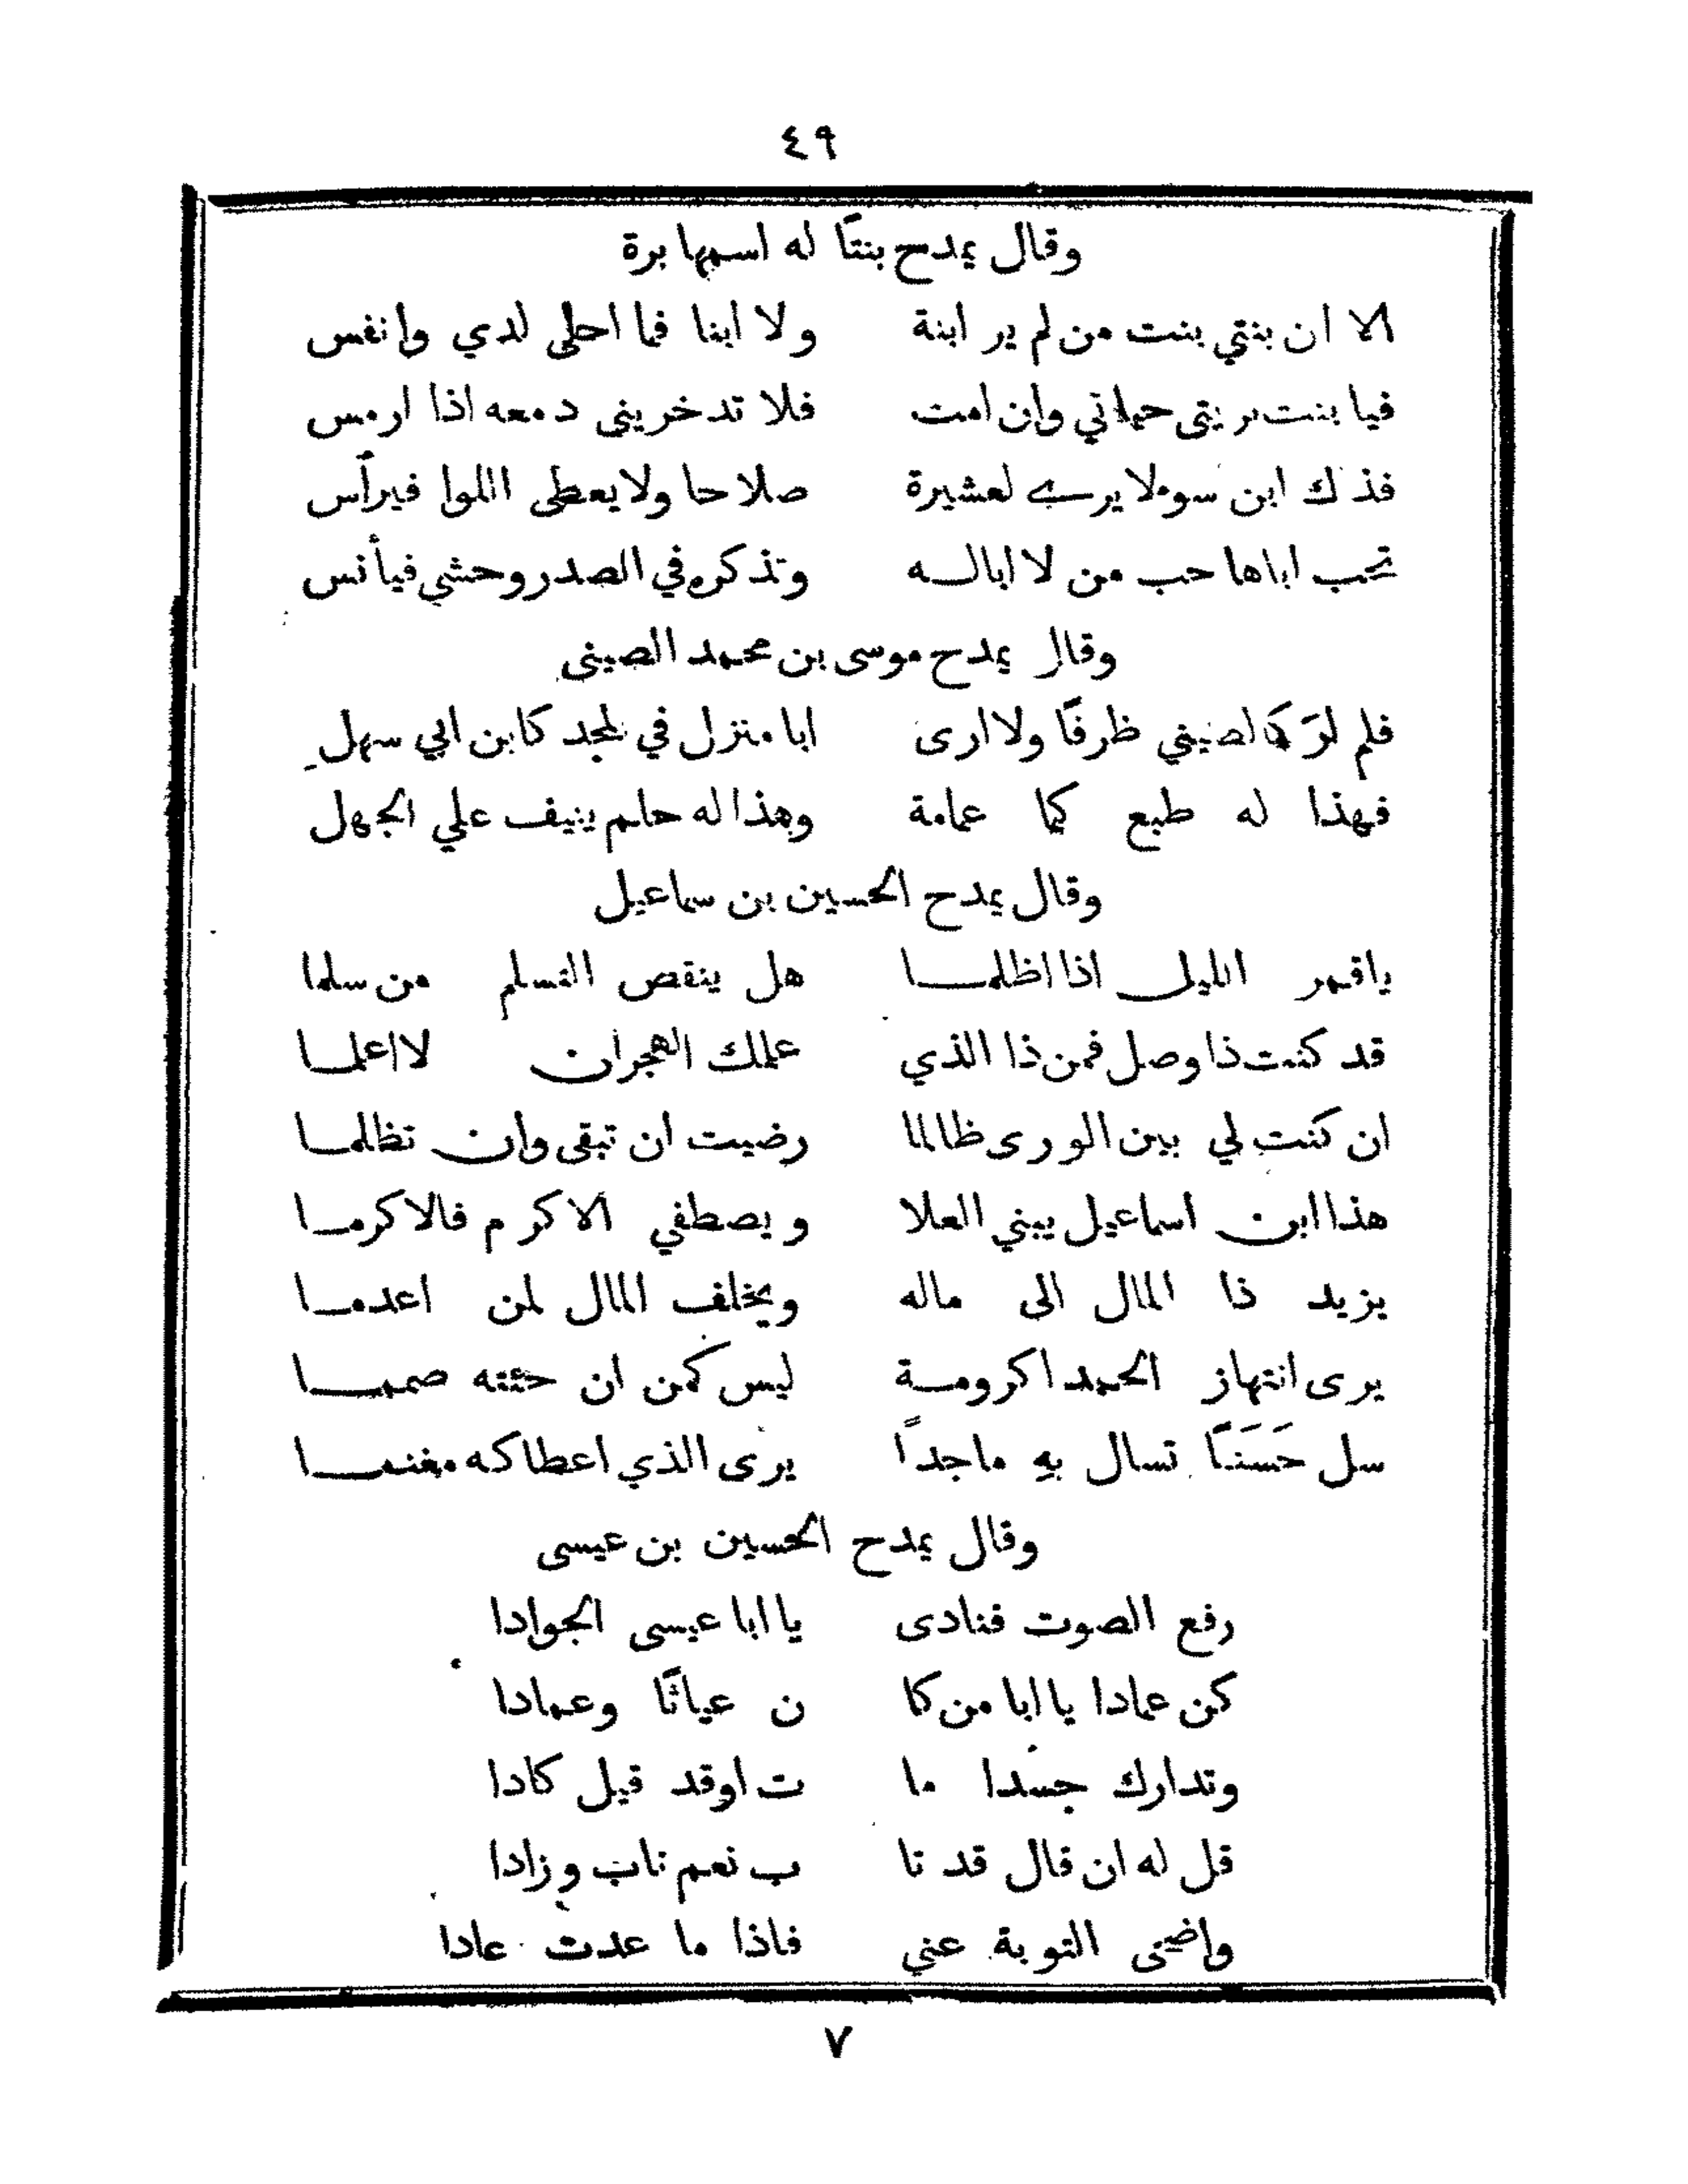 ٤٩
وقال يمدح بنتًا له اسمها برة
الا ان بنتي بنت من لم ير ابنة ولا ابنا فما احلى لدي وانفس
فيا بنت بريتى حياتي وان امت فلا تدخرينى دمعه اذا ارمس
فذك ابن سوء لا يرى لعشيرة صلاحا ولا يعطى اللوا فيرآس
تحب اباها حب من لا ابا لـه وتذكره في الصدر وحشي فيأنس
وقال يمدح موسى بن محمد الصينى
فلم ارَ كالصيني ظرفًا ولا ارى ابا منزل في المجد كابن ابي سهل
فهذا له طبع كما عمامة وهذا له حلم ينيف علي الجهل
وقال يمدح الحسين بن سماعيل
ياقمر الليل اذا اظلمـا هل ينقص التسلم من سلما
قد كنت ذا وصل فمن ذا الذي علمك الهجران لا اعلمـا
ان كنت لي بين الورى ظالما رضيت ان تبقى وان تظلمـا
هذا ابن اسماعيل يبني العلا ويصطفي الاكرم فالاكرمـا
يزيد ذا المال الى ماله ويخلف المال لمن اعدمـا
يرى انتهاز الحمد اكرومـة ليس كمن ان حئته صممـا
سل حَسَنًا تسال بهِ ماجدًا يرى الذي اعطاكه مغنمـا
وقال يمدح الحسين بن عيسى
رفع الصوت فنادى يا ابا عيسى الجوادا
كن عمادا يا ابا من كا ن عياثًا وعمادا
وتدارك جسدا ما ت اوقد قيل كادا
قل له ان قال قد تا ب نعم تاب وزادا
واضحى التوبة عني فاذا ما عدت عادا
٧